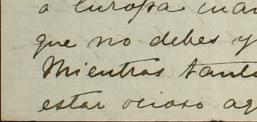 a Europa cuan
que no debes y
Mientras tanto
estar ocioso aq